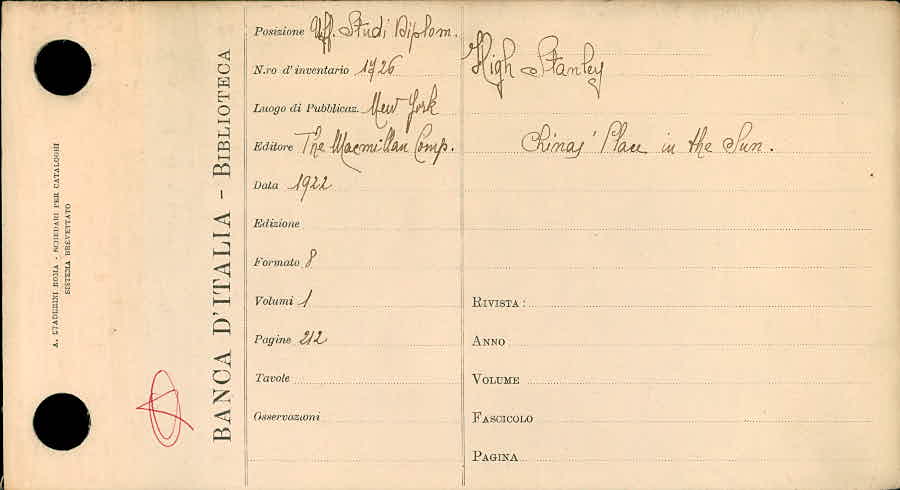 A. STADERINI ROMA - SCHEDARI PER CATALOGHI
SISTEMA BREVETTATO
BANCA D'ITALIA - BIBLIOTECA
Posizione Uff. Studi Diplom.
N.ro d'inventario 1726
Luogo di Pubblicaz. New York
Editore The Macmillan Comp.
Data 1922
Edizione
Formato 8
Volumi 1
Pagine 212
Tavole
Osservazioni
High Stanley
Chinas' Place in the Sun.
RIVISTA:
ANNO
VOLUME
FASCICOLO
PAGINA